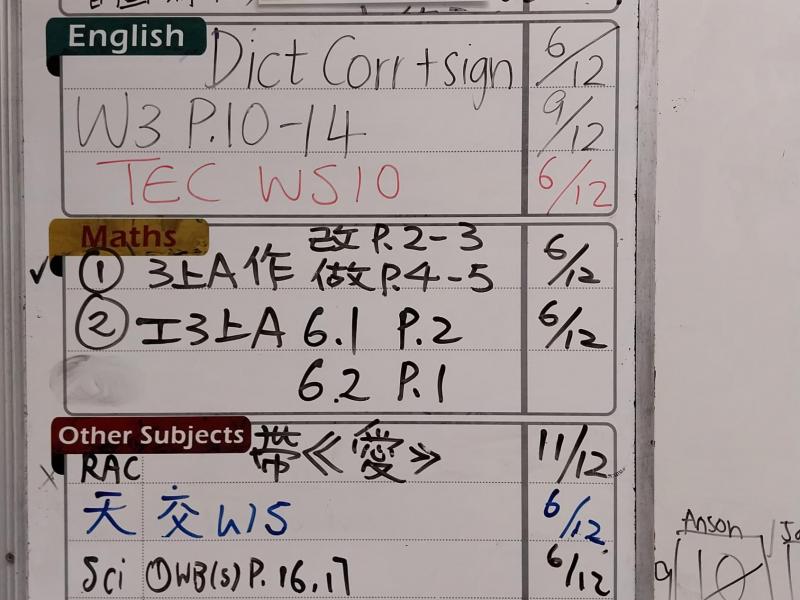 English
Dict Corr + sign 6/12
W3 P.10-14 9/12
TEC WS10 6/12
Maths
改 P.2-3
① 3上A作 做P.4-5 6/12
② 工3上A 6.1 P.2 6/12
6.2 P.1
Other Subjects
RAC 帶《愛》 11/12
天 交 W15 6/12
Sci ①WB(s) P.16,17 6/12
Anson
10